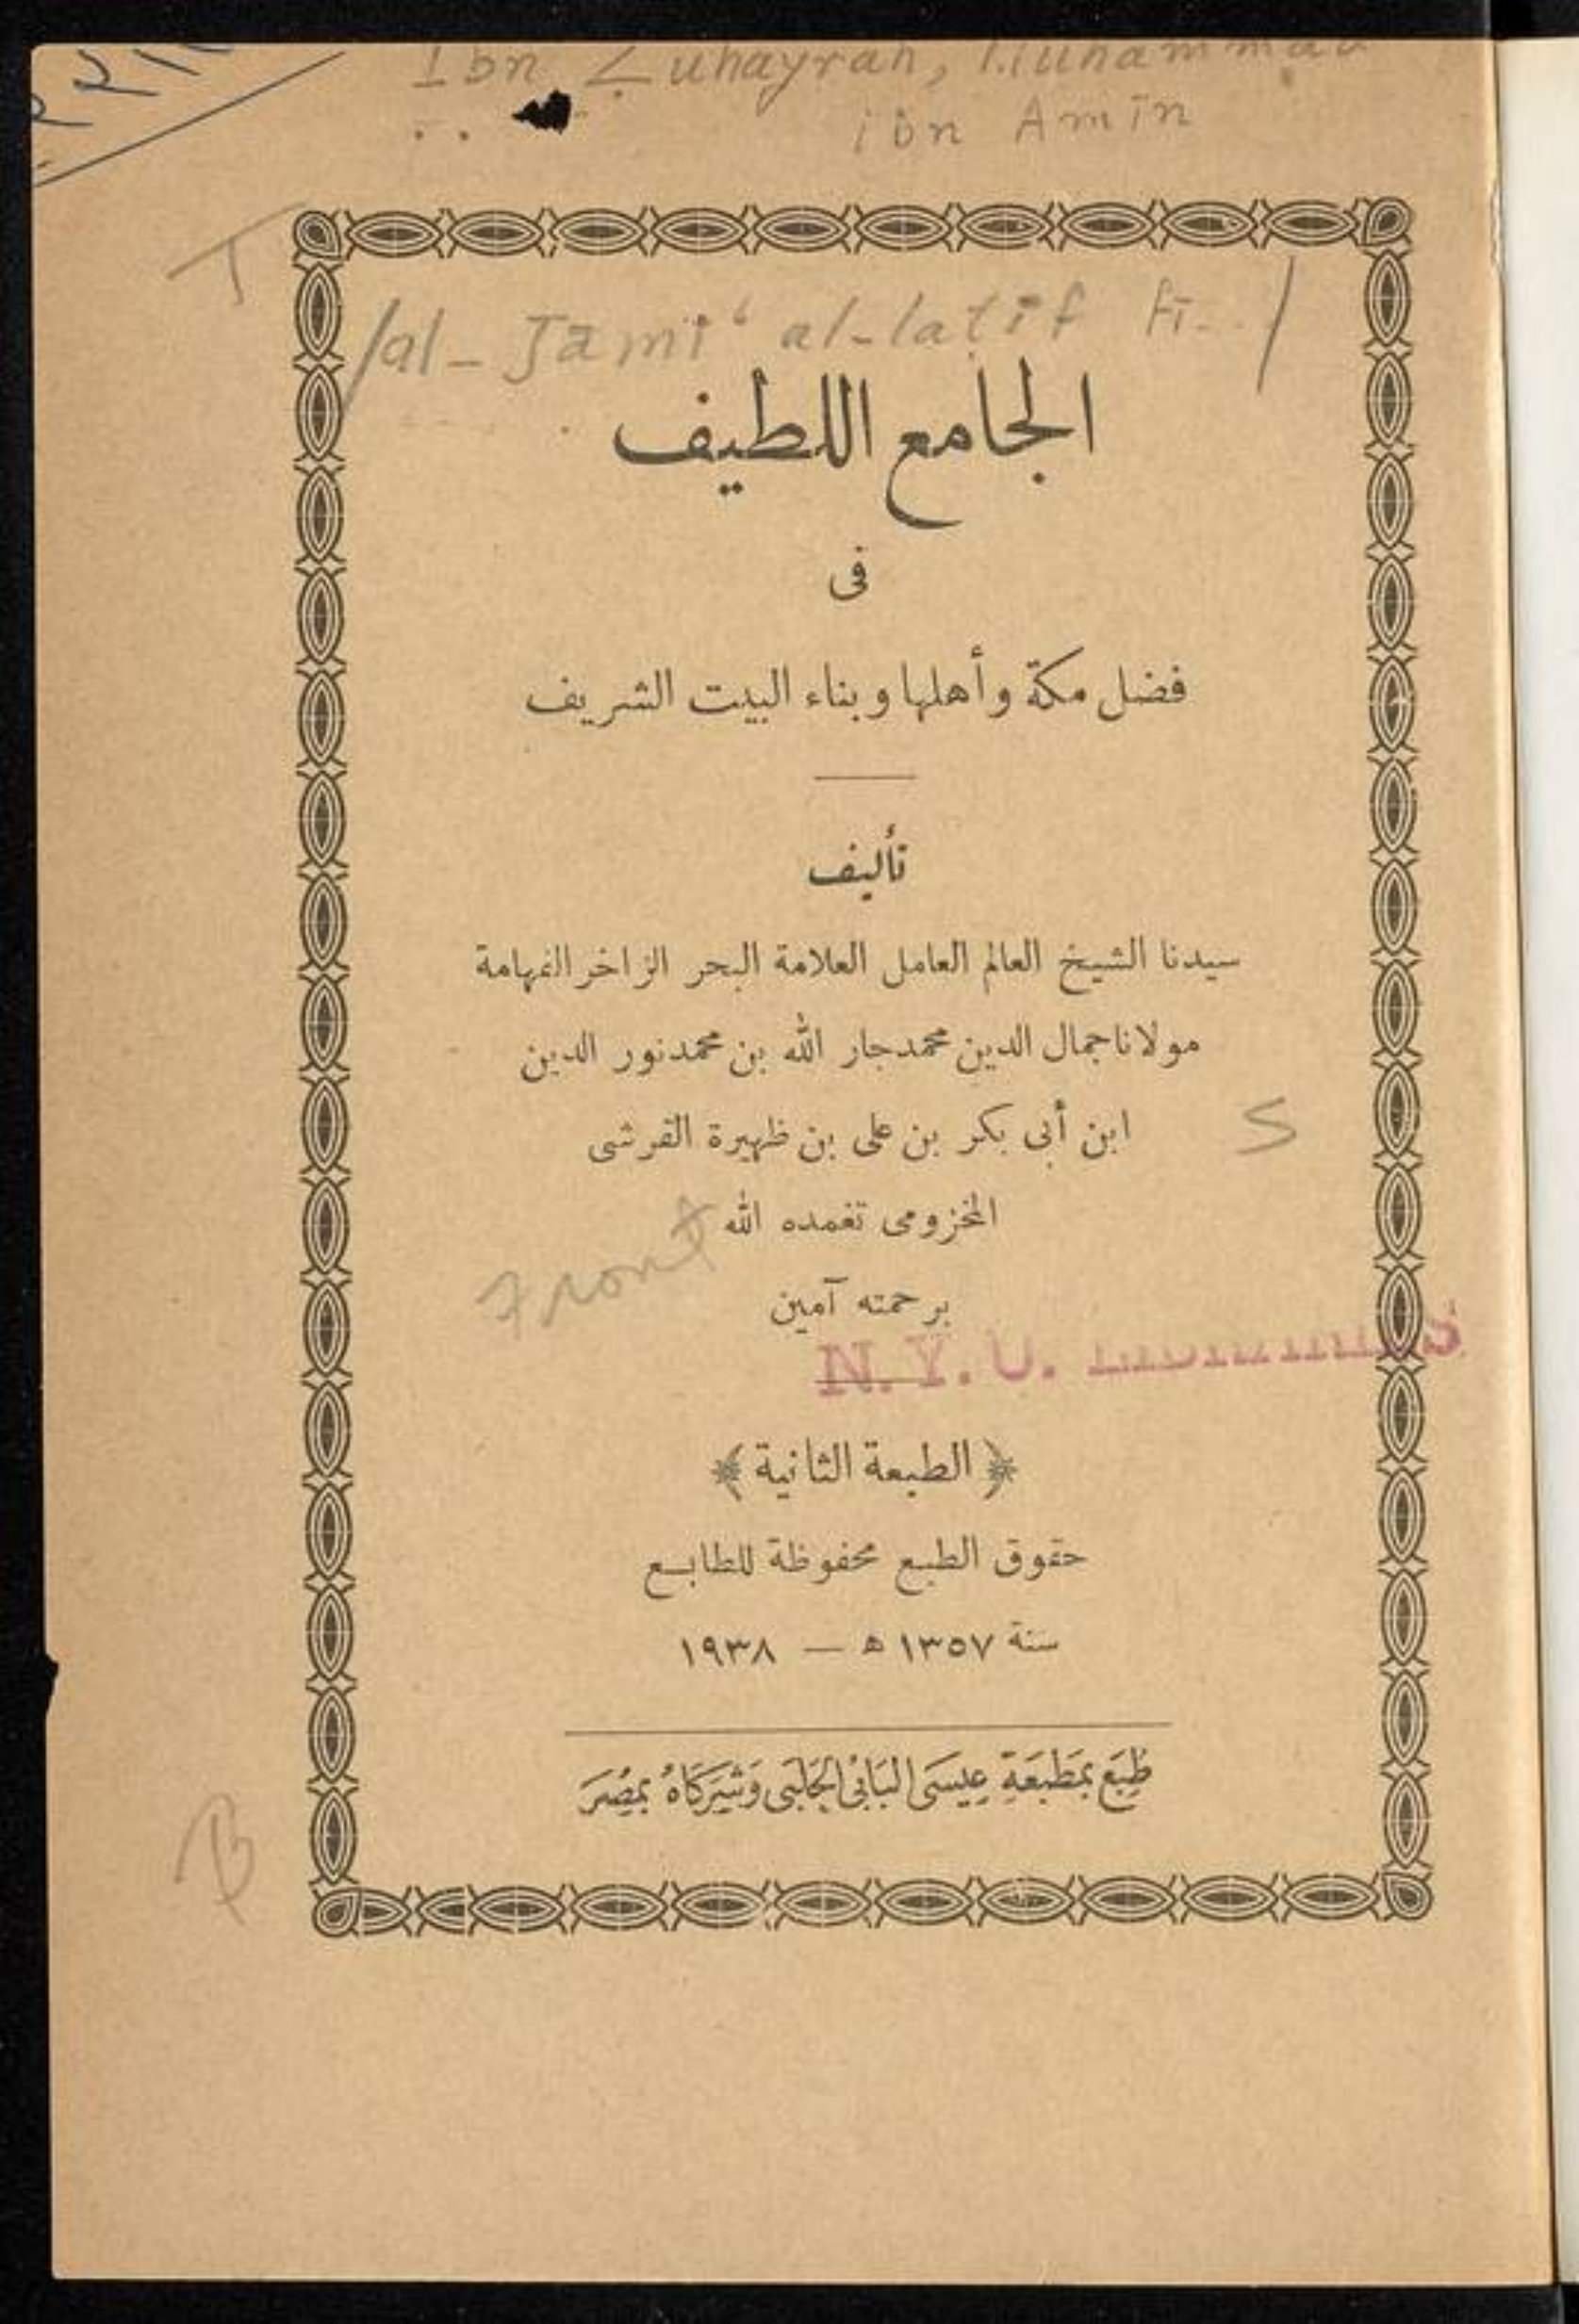 Ibn Zuhayrah, Muhammad
ibn Amīn
T
/al-Jāmiʻ al-laṭīf fī../
الجامع اللطيف
فى
فضل مكة وأهلها وبناء البيت الشريف
تأليف
سيدنا الشيخ العالم العامل العلامة البحر الزاخر الفهامة
مولانا جمال الدين محمد جار الله بن محمد نور الدين
ابن أبى بكر بن على بن ظهيرة القرشى
S
المخزومى تغمده الله
Front
برحمته آمين
N. Y. U. LIBRARIES
﴿ الطبعة الثانية ﴾
حقوق الطبع محفوظة للطابع
سنة ١٣٥٧ ه — ١٩٣٨
طُبِعَ بِمَطْبَعَةِ عِيسَى البَابِى الحَلَبِى وَشُرَكَاهُ بِمِصْرَ
B